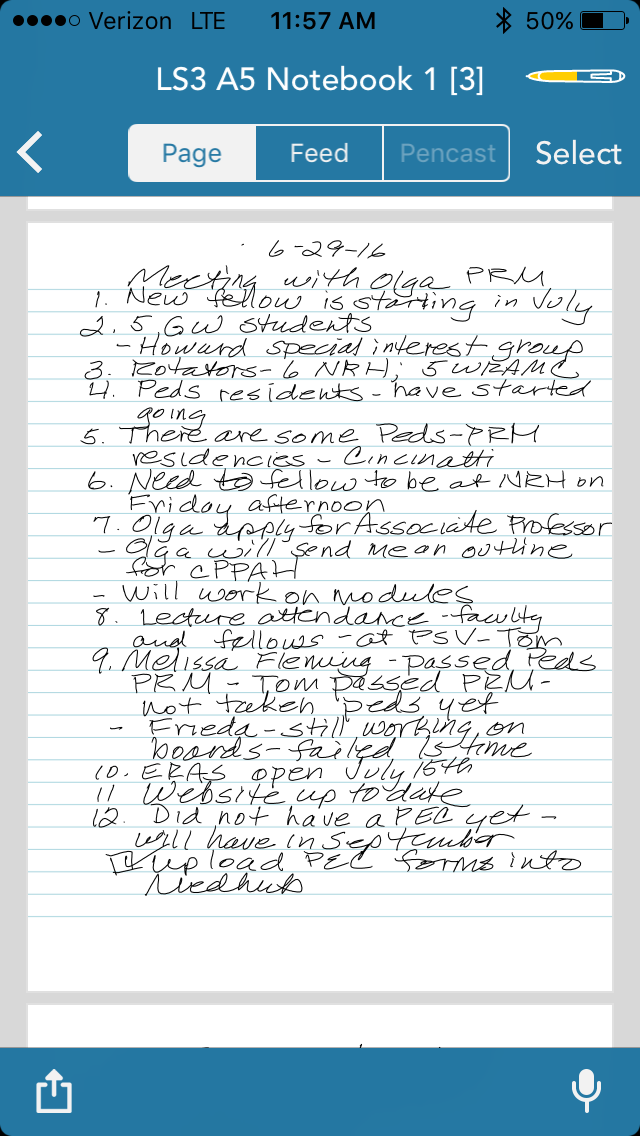 Verizon LTE 11:57 AM 50%
LS3 A5 Notebook 1 [3]
Page Feed Pencast Select
6-29-16
Meeting with Olga PRM
1. New fellow is starting in July
2. 5 GW students
- Howard special interest group
3. Rotators - 6 NRH; 5 WRAMC
4. Peds residents - have started
going
5. There are some Peds-PRM
residencies - Cincinatti
6. Need to fellow to be at NRH on
Friday afternoon
7. Olga apply for Associate Professor
- Olga will send me an outline
for CPPAH
- Will work on modules
8. Lecture attendance - faculty
and fellows - at PSV - Tom
9. Melissa Fleming - passed Peds
PRM - Tom passed PRM -
not taken peds yet
- Frieda - still working on
boards - failed 1s time
10. ERAS open July 15th
11 Website up to date
12. Did not have a PEC yet -
will have in September
upload PEC forms into
Medhub